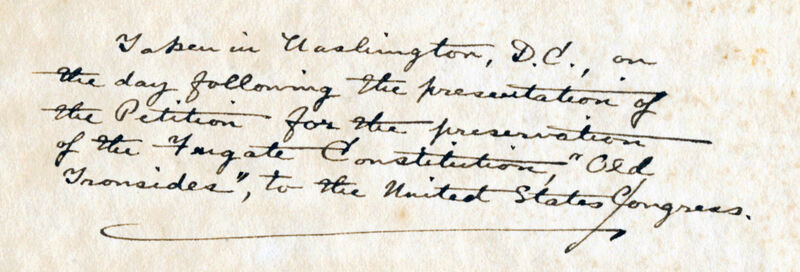 Taken in Washington, D.C., on
the day following the presentation of
the Petition for the preservation
of the Frigate Constitution, "Old
Ironsides", to the United States Congress.